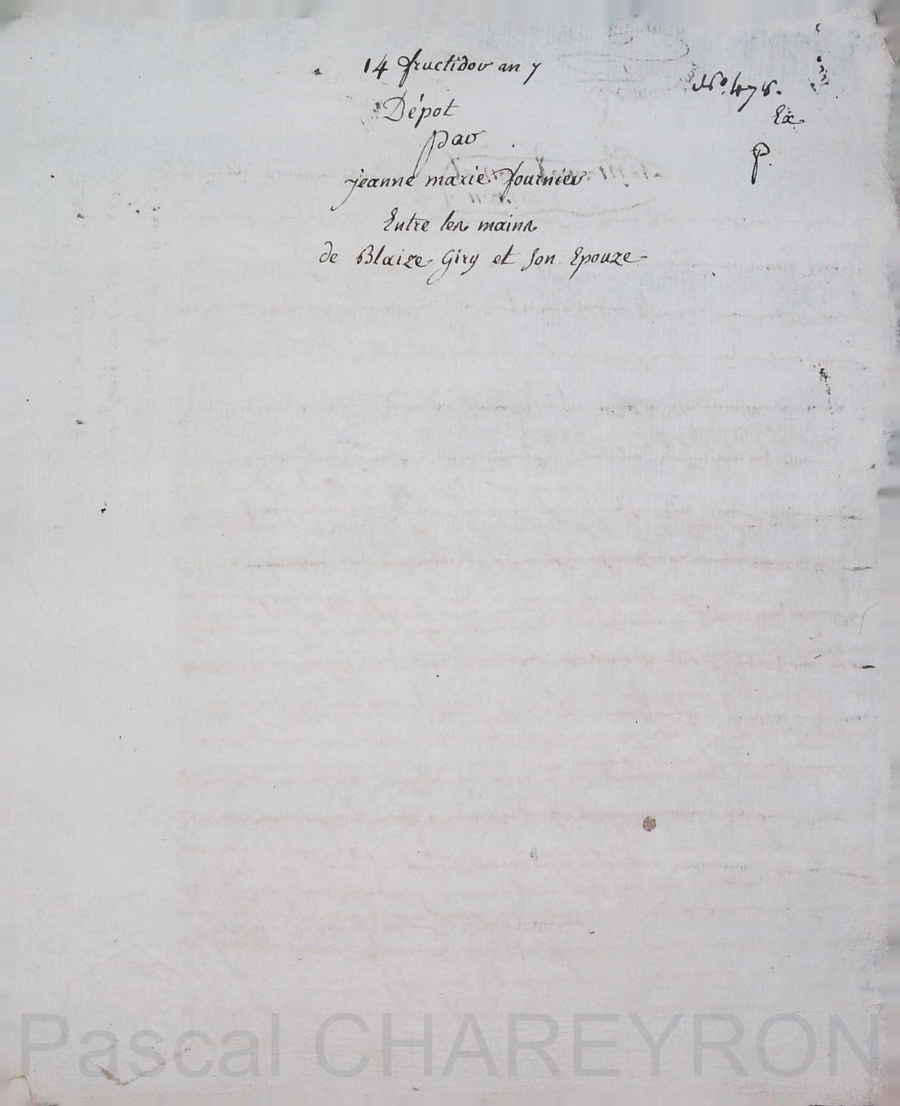 14 fructidor an 7
Dépot
par
jeanne marie fournier
Entre les mains
de Blaize Giry et son Epouze
N.º 478.
Ex
p.
Pascal CHAREYRON